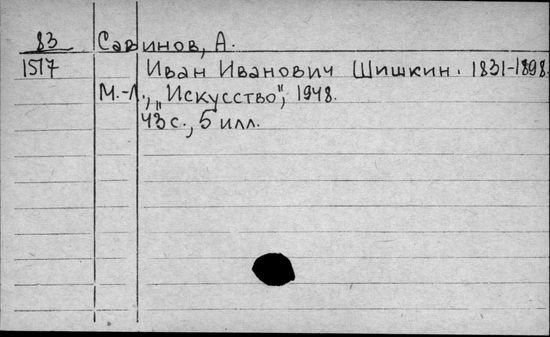 83 Савинов, А.
1517 Иван Иванович Шишкин. 1831-1898.
М.-Л., „Искусство", 1948.
43 с., 5 илл.